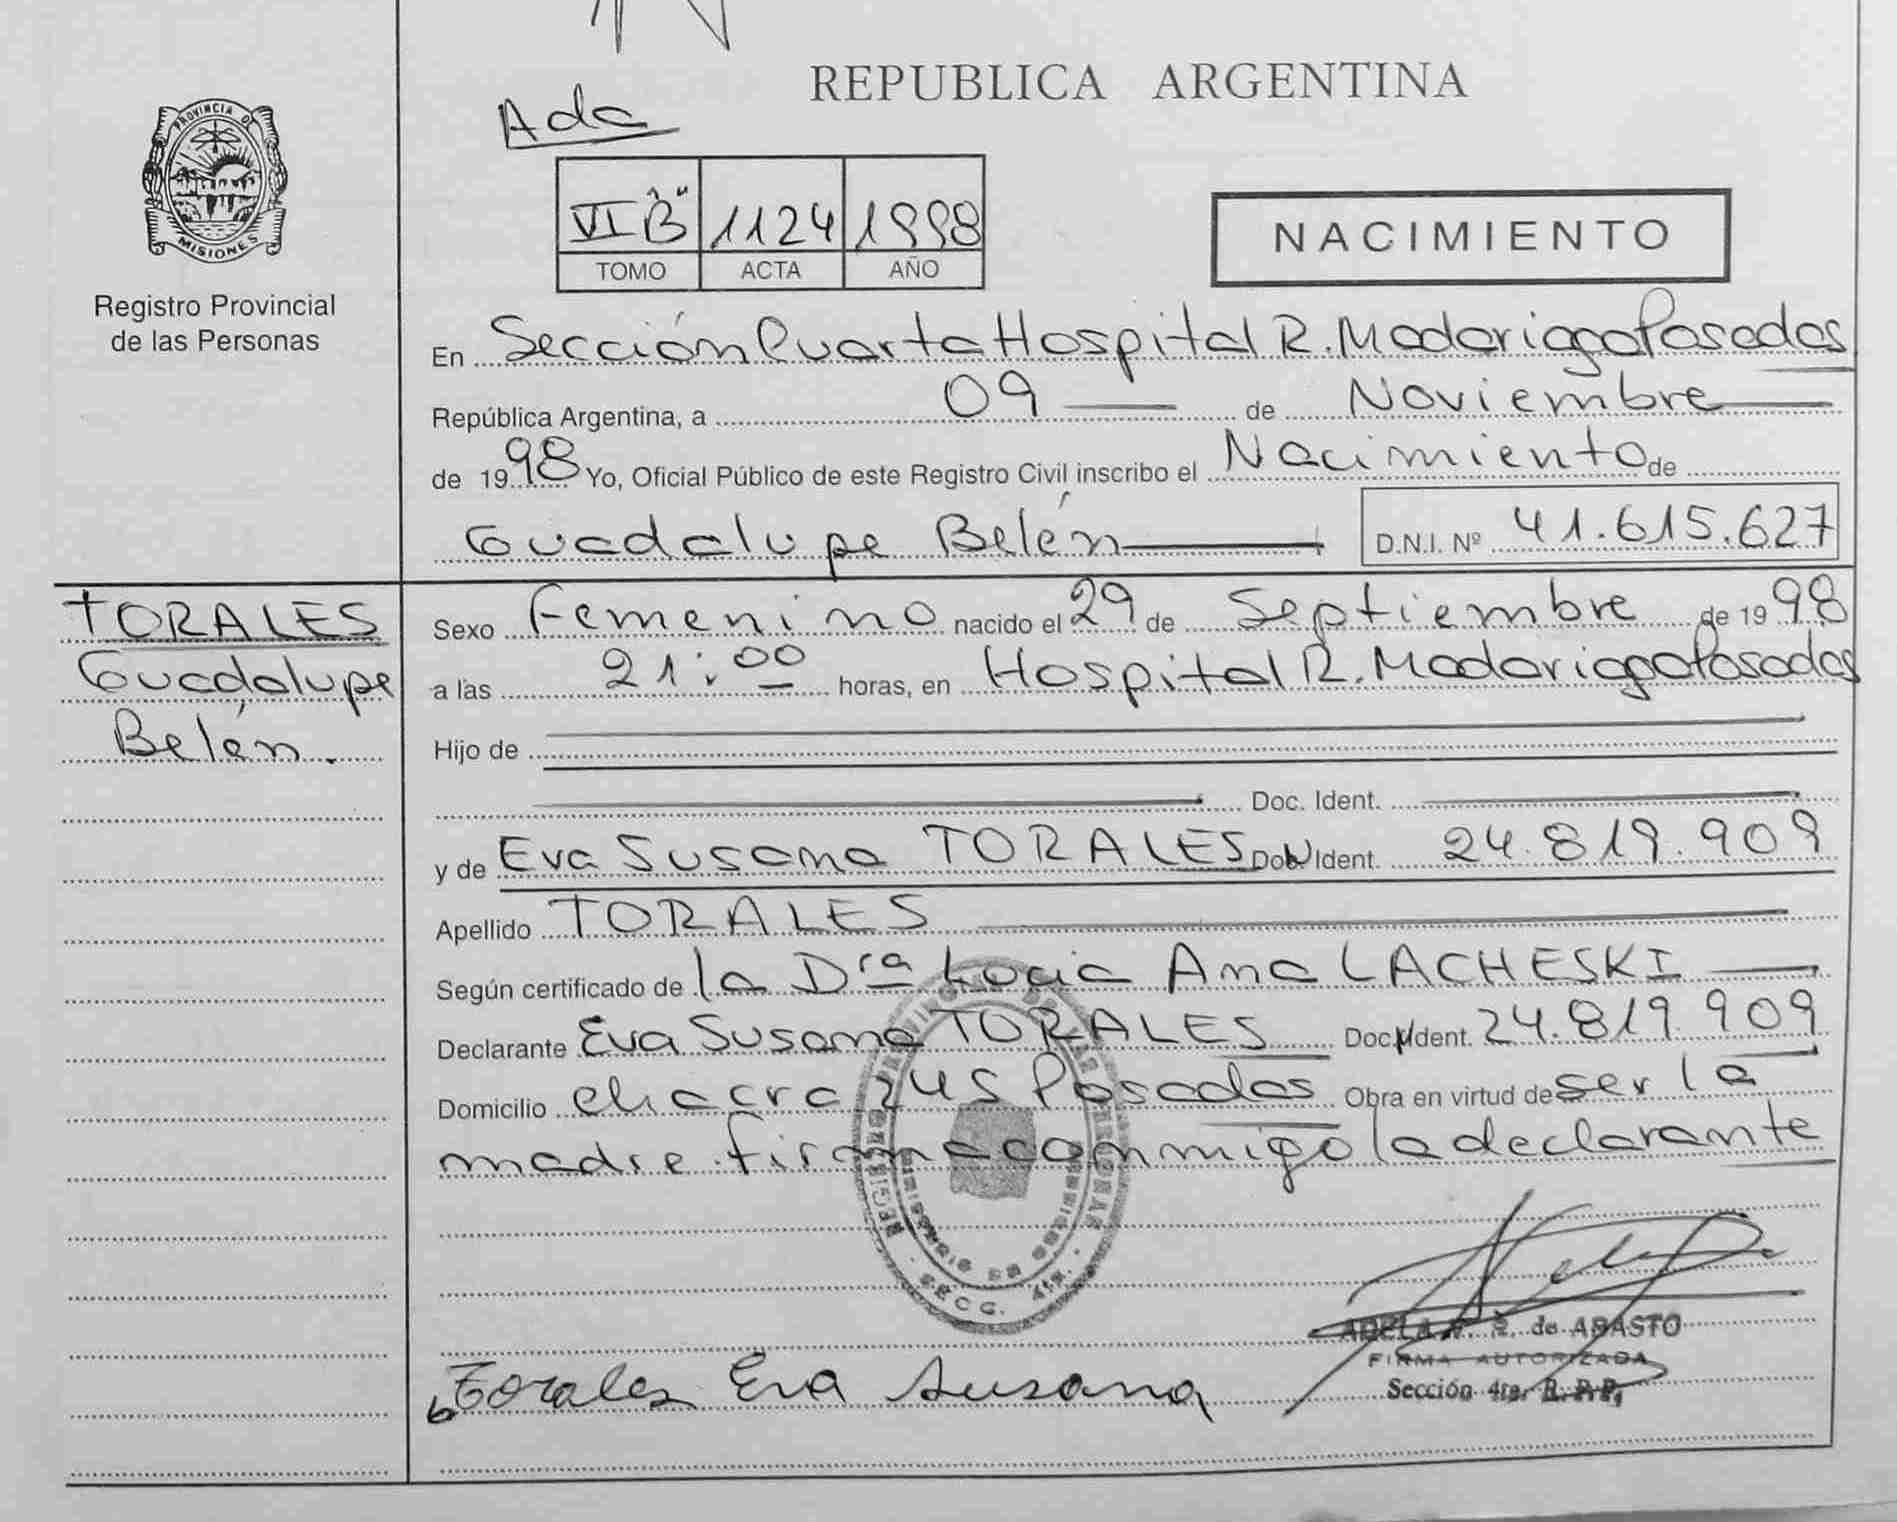 REPUBLICA ARGENTINA
Ada
PROVINCIA DE
MISIONES
Registro Provincial
de las Personas
VI "B" 1124 1998
TOMO ACTA AÑO
NACIMIENTO
En Sección Cuarta Hospital R. Madariaga Posadas
República Argentina, a 09 de Noviembre
de 1998 Yo, Oficial Público de este Registro Civil inscribo el Nacimiento de
Guadalupe Belén D.N.I. Nº 41.615.627
TORALES
Guadalupe
Belén.
Sexo Femenino nacido el 29 de Septiembre de 1998
a las 21:00 horas, en Hospital R. Madariaga Posadas
Hijo de
Doc. Ident.
y de Eva Susana TORALES Doc. Ident. 24.819.909
Apellido TORALES
Según certificado de la Dra Lucia Ana LACHESKI
Declarante Eva Susana TORALES Doc. Ident. 24.819.909
Domicilio chacra 245 Posadas Obra en virtud de ser la
madre. firma conmigo la declarante
SECC. 4ta.
ADELA de ABASTO
FIRMA AUTORIZADA
Sección 4ta. R. P. P.
Torales Eva Susana